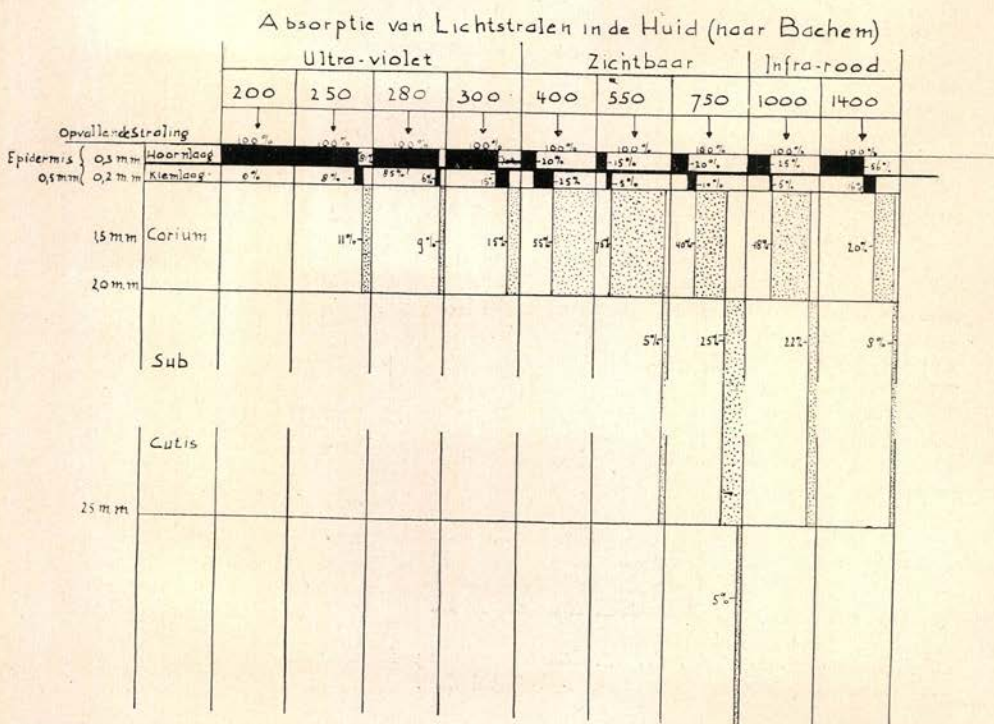 Absorptie van Lichtstralen in de Huid (naar Bachem)
Ultra-violet Zichtbaar Infra-rood
200 250 280 300 400 550 750 1000 1400
Opvallende Straling
100% 100% 100% 100% 100% 100% 100% 100% 100%
Epidermis 0,3 mm Hoornlaag 81% 20% 15% 20% 25% 56%
0,5 mm 0,2 m.m Kiemlaag 0% 8% 85% 6% 15% 25% 5% 10% 5% 16%
1,5 m.m Corium 11% 9% 15% 55% 75% 40% 48% 20%
2,0 m.m
5% 25% 22% 8%
Sub
Cutis
25 m.m
5%